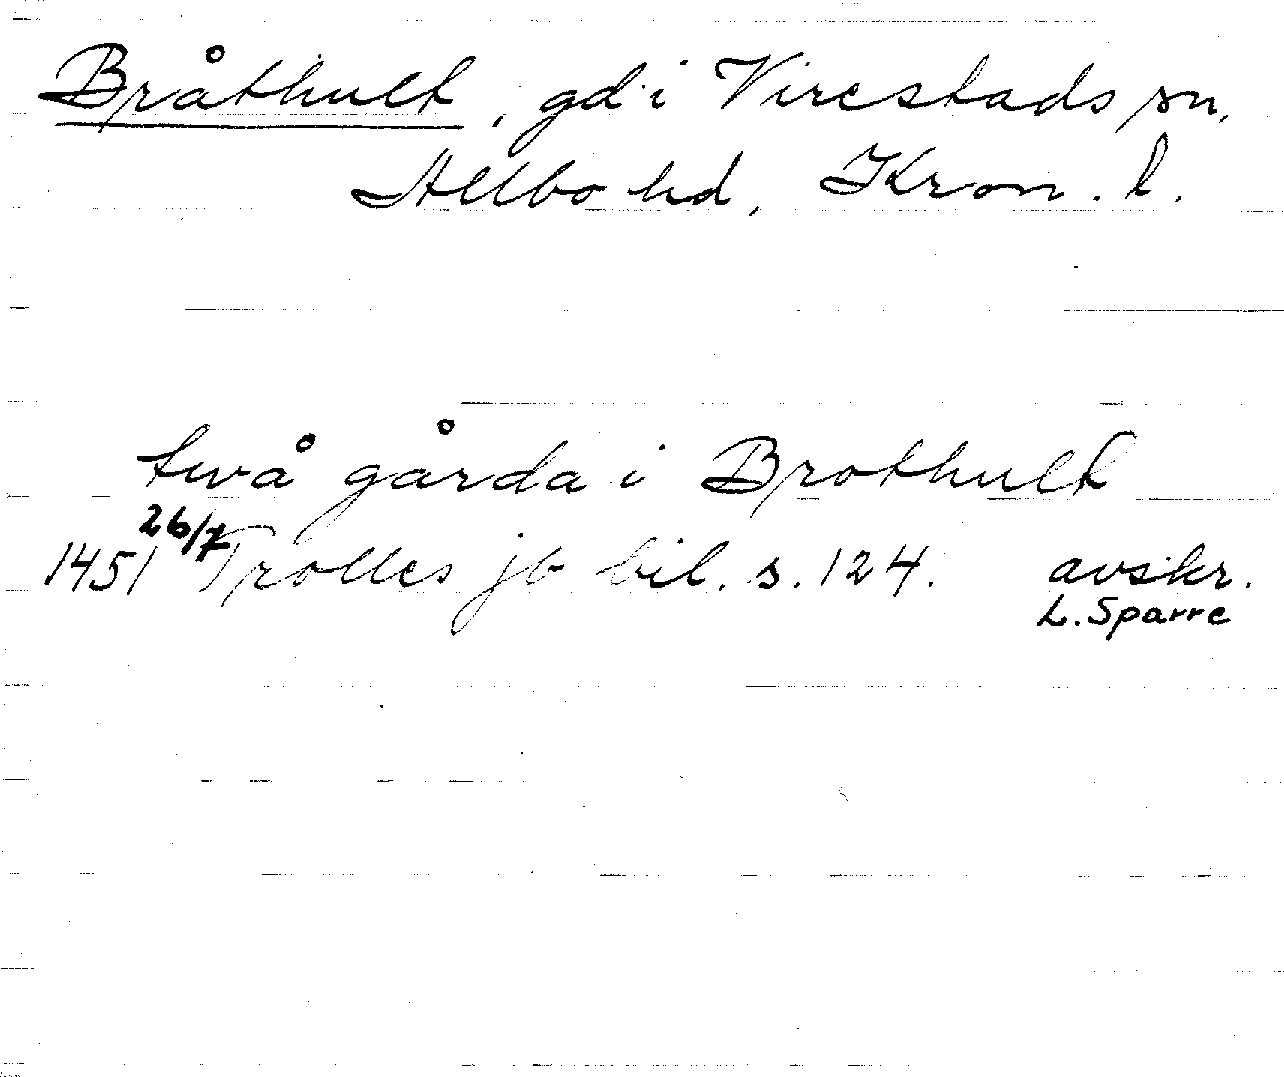 Bråthult, gd i Virestads sn,
Allbo hd, Kron. l.
twå gårda i Brothult
1451 26/7 Trolles jb bil. s. 124. avskr.
L. Sparre